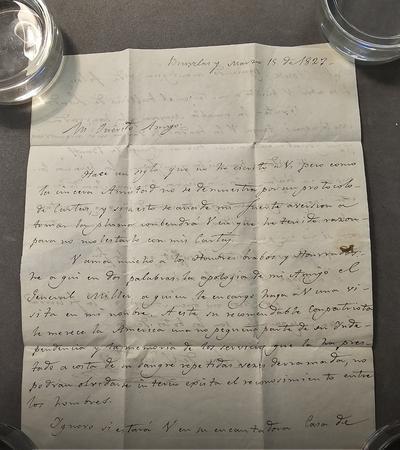 Bruselas y Marzo 18 de 1827.
Mi Querido Amigo
Hace un siglo que no he escrito a V. pero como
la sincera Amistad no se demuestra por un protocolo
de Cartas, y si a esto se añade mi fuerte aversion a
tomar la pluma convendrá V en que he tenido razon
para no molestarlo con mis Cartas.
V ama mucho a los Hombres brabos y Honrrados
he aqui en dos palabras la apologia de mi Amigo el
General Miller a quien he encargo haga a V una vi-
sita en mi nombre. A este su recomendable compatriota
le merece la America una no pequeña parte de su Inde-
pendencia y la memoria de los servicios que la ha pres-
tado a costa de su sangre repetidas veces derramada, no
podran olvidarse in terin exista el reconosimiento entre
los hombres.
Ignoro si estará V en su encantadora Casa de